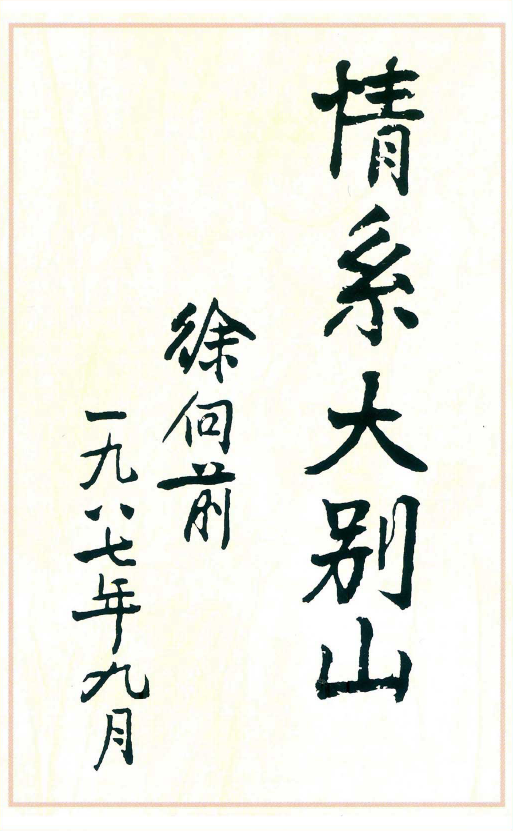 情系大别山
徐向前
一九八七年九月